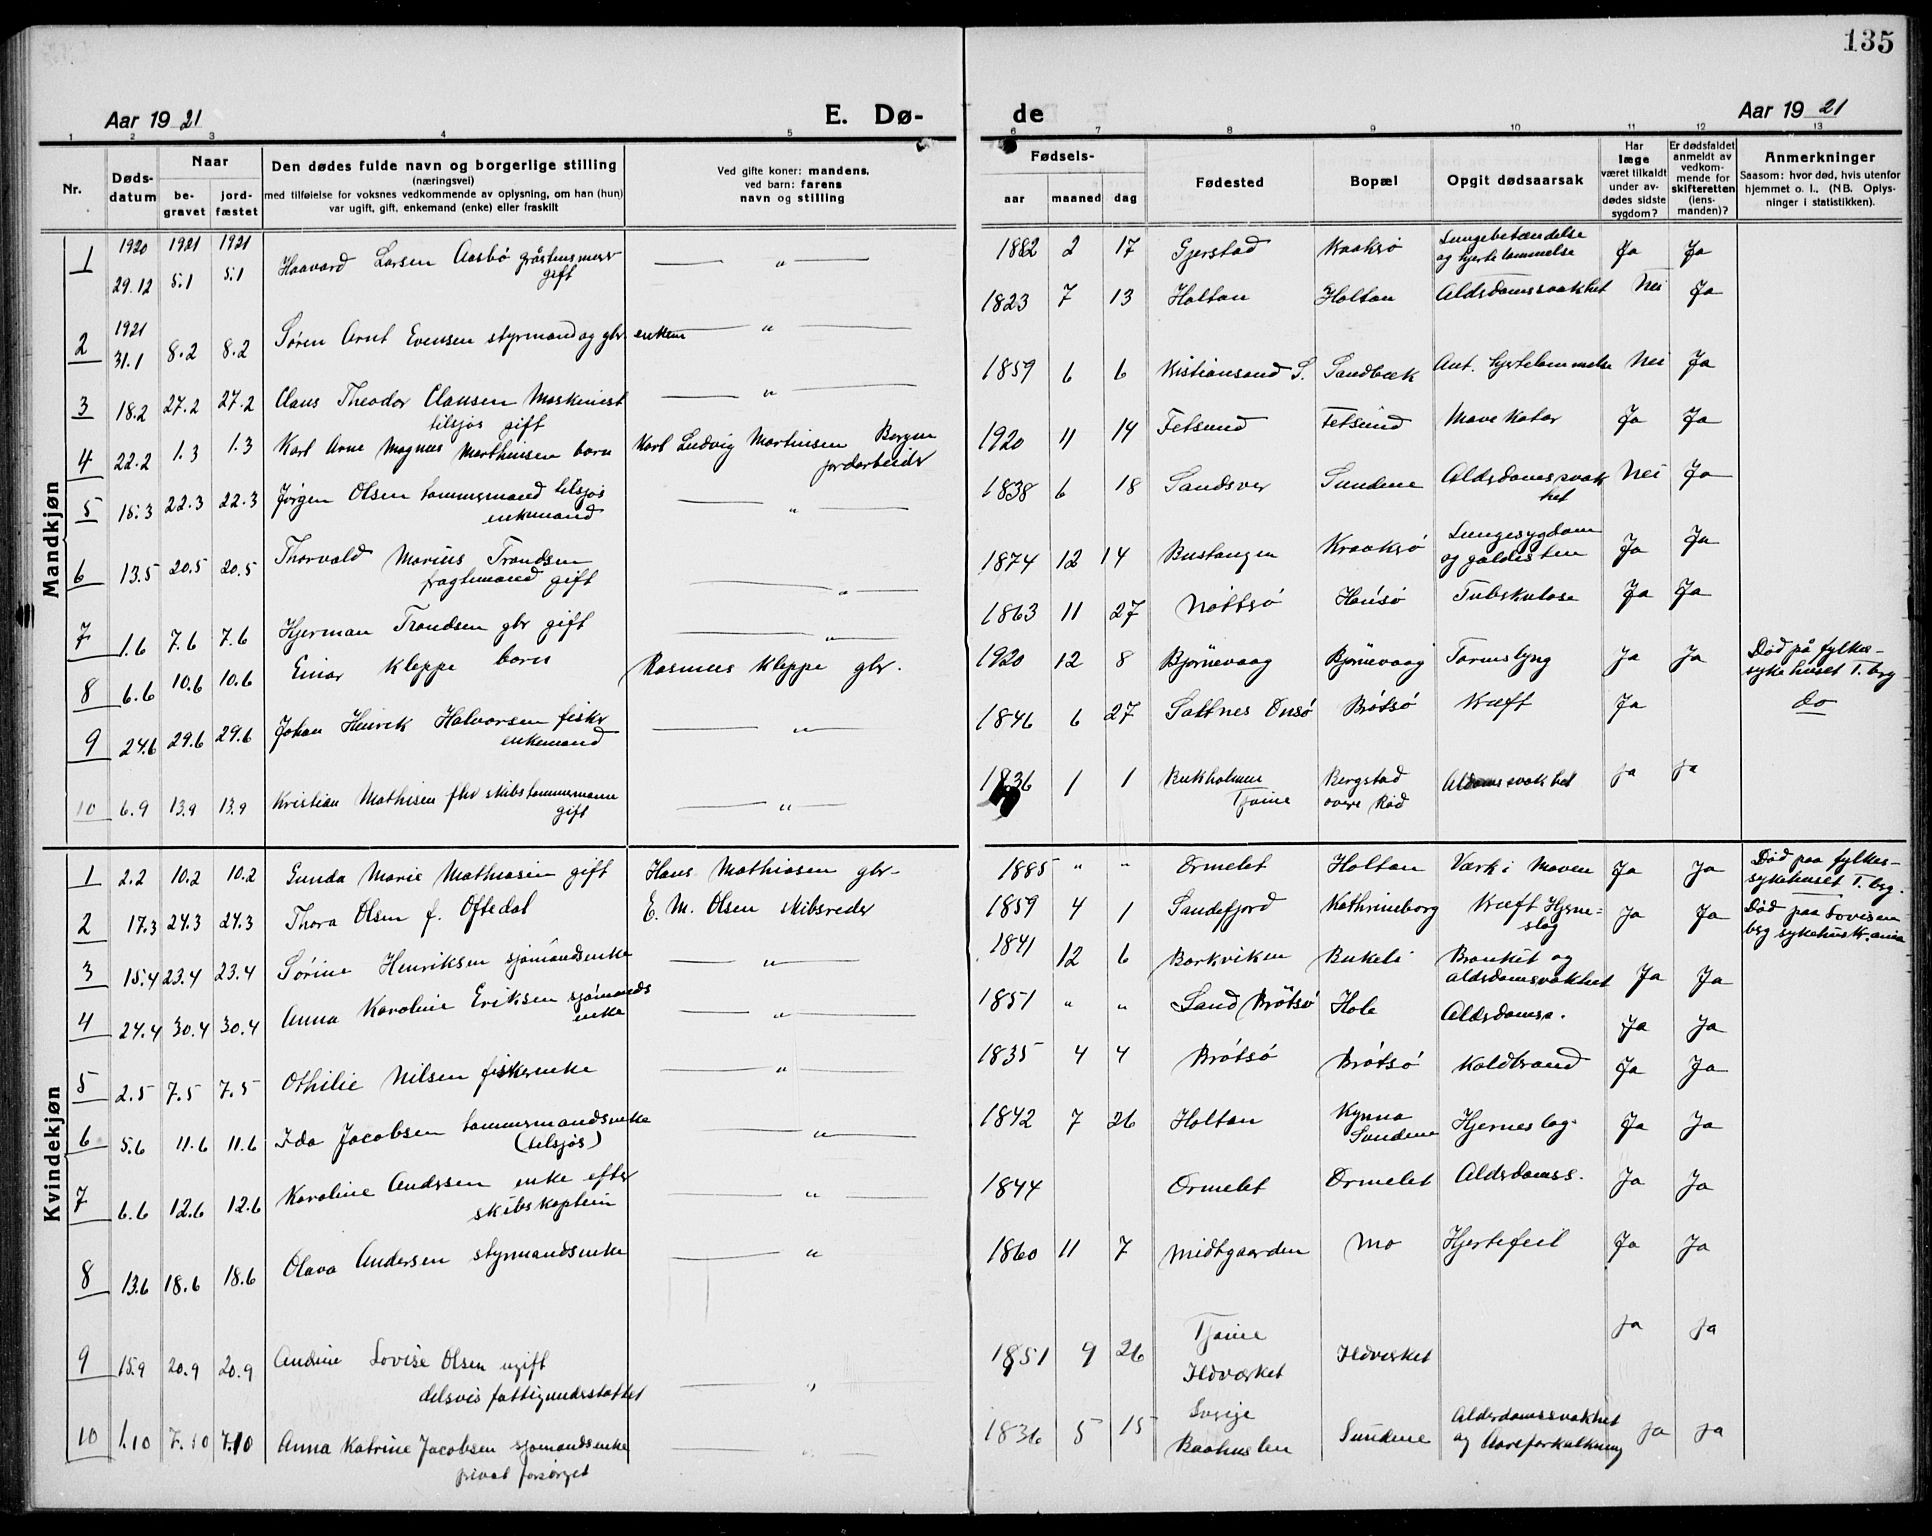 135
Aar 1921 E. Dø- de Aar 1921
1 2 3 4 5 6 7 8 9 10 11 12 13
Nr. Døds-datum Naar be-gravet jord-fæstet
Den dødes fulde navn og borgerlige stilling
(næringsvei)
med tilføielse for voksnes vedkommende av oplysning, om han (hun)
var ugift, gift, enkemand (enke) eller fraskilt
Ved gifte koner: mandens,
ved barn: farens
navn og stilling
Fødsels- aar maaned dag
Fødested Bopæl Opgit dødsaarsak
Har læge været tilkaldt under av-dødes sidste sygdom?
Er dødsfaldet anmeldt av vedkom-mende for skifteretten (lens-manden)?
Anmerkninger
Saasom: hvor død, hvis utenfor
hjemmet o. l., (NB. Oplys-
ninger i statistikken).
Mandkjøn
1 1920 29.12 1921 5.1 1921 5.1 Haavard Larsen Aasbø gift — " — 1882 2 17 Gjerstad Kraaksø Lungebetændelse og hjertelammelse Ja Ja
2 1921 31.1 8.2 8.2 Søren Arnt Evensen styrmand og gbr. enkem — " — 1823 7 13 Holtan Holtan Alderdomssvakhet Nei Ja
3 18.2 27.2 27.2 Claus Theodor Clausen Maskinist tilsjøs gift — " — 1859 6 6 Kristiansand S. Sandbæk Ant. hjertelammelse Nei Ja
4 22.2 1.3 1.3 Karl Arne Magnus Marthinsen barn Karl Ludvig Martinsen Bergan jordarbeider 1920 11 14 Fetsund Fetsund Mavekatar Ja Ja
5 15.3 22.3 22.3 Jørgen Olsen tømmermand tilsjøs enkemand — " — 1838 6 18 Sandsver Sundene Alderdomssvakhet Nei Ja
6 13.5 20.5 20.5 Thorvald Marius Trondsen fragtemand gift — " — 1874 12 14 Bustangen Kraaksø Lungesygdom og galdesten Ja Ja
7 1.6 7.6 7.6 Hjerman Trondsen gbr gift — " — 1863 11 27 Nøttsø Houøsø Tuberkulose Ja Ja
8 6.6 10.6 10.6 Einar Kleppe barn Rasmus Kleppe gbr. 1920 12 8 Bjørnevaag Bjørnevaag Tarmslyng Ja Ja Død på fylkes-sykehuset T.berg
9 24.6 29.6 29.6 Johan Henrik Halvorsen fisker enkemand — " — 1846 6 27 Saltnes Onsø Brøtsø Kræft Ja do
10 6.9 13.9 13.9 Kristian Mathisen fhv skibstømmermann gift — " — 1836 1 1 Bukholmen Tjøme Bergstad øvre Rød Alderdomssvakhet ja ja
Kvindekjøn
1 2.2 10.2 10.2 Gunda Marie Mathiasen gift Hans Mathiasen gbr- 1885 " " Ormelet Holtan Værk i Maven Ja Ja Død paa fylkes-sykehuset T.berg.
2 17.3 24.3 24.3 Thora Olsen f. Oftedal E. M. Olsen skibsreder 1859 4 1 Sandefjord Kathrineborg Kræft Hjerneslag Ja Ja Død paa Lovisenberg sykehus Kr.ania
3 15.4 23.4 23.4 Sørine Henriksen sjømandsenke — " — 1841 12 6 Barkviken Bukeli Bronkit og alderdomsvakhet Ja Ja
4 24.4 30.4 30.4 Anna Karoline Eriksen sjømands enke — " — 1851 " " Sand (Brøtsø Hole Alderdomss. Ja Ja
5 2.5 7.5 7.5 Othilie Nilsen fiskerenke — " — 1835 4 4 Brøtsø Brøtsø Koldbrand Ja Ja
6 5.6 11.6 11.6 Ida Jacobsen tømmermandsenke (tilsjøs) — " — 1842 7 26 Holtan Kynna Sundene Hjerneslag. Ja Ja
7 6.6 12.6 12.6 Karoline Andersen enke efter skibskaptein — " — 1844 Ormelet Ormelet Alderdomss. Ja Ja
8 13.6 18.6 18.6 Olava Andersen styrmandsenke — " — 1860 11 7 Midtgaarden Mo Hjertefeil Ja Ja
9 15.9 20.9 20.9 Andine Lovise Olsen ugift delsvis fattigunderstøttet — " — 1851 9 26 Tjøme Ildverket Ildverket ja ja
10 1.10 7.10 7.10 Anna Katrine Jacobsen sjømandsenke privat forsørget — " — 1836 5 15 Sverige Baahuslen Sundene Alderdomssvakhet og Aareforkalkning ja ja